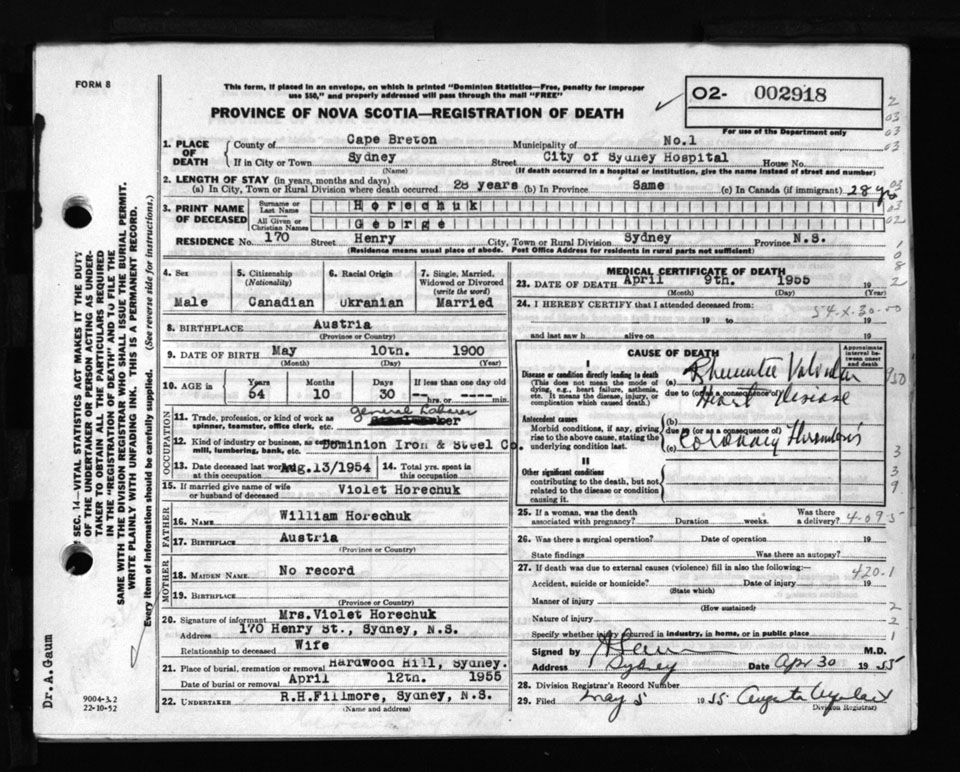 FORM 8
This form, if placed in an envelope, on which is printed "Dominion Statistics—Free, penalty for improper
use $50," and properly addressed will pass through the mail "FREE"
O2- 002918
PROVINCE OF NOVA SCOTIA—REGISTRATION OF DEATH
For use of the Department only
1. PLACE OF DEATH
County of Cape Breton Municipality of No.1
If in City or Town Sydney Street City of Sydney Hospital House No.
(Name) (If death occurred in a hospital or institution, give the name instead of street and number)
2. LENGTH OF STAY (in years, months and days)
(a) In City, Town or Rural Division where death occurred 28 years (b) in Province Same (c) in Canada (if immigrant) 28 yrs
3. PRINT NAME OF DECEASED
Surname or Last Name Horechuk
All Given or Christian Names George
RESIDENCE No. 170 Street Henry City, Town or Rural Division Sydney Province N.S.
(Residence means usual place of abode. Post Office Address for residents in rural parts not sufficient)
4. Sex
Male
5. Citizenship
(Nationality)
Canadian
6. Racial Origin
Ukranian
7. Single, Married, Widowed or Divorced
(write the word)
Married
8. BIRTHPLACE Austria
(Province or Country)
9. DATE OF BIRTH May 10th. 1900
(Month) (Day) (Year)
10. AGE in Years 54 Months 10 Days 30 If less than one day old
hrs. or min.
OCCUPATION
11. Trade, profession, or kind of work as spinner, teamster, office clerk, etc. general Laborer
12. Kind of industry or business, as mill, lumbering, bank, etc. Dominion Iron & Steel Co.
13. Date deceased last worked at this occupation Aug.13/1954
14. Total yrs. spent in this occupation
15. If married give name of wife or husband of deceased Violet Horechuk
FATHER
16. NAME William Horechuk
17. BIRTHPLACE Austria
(Province or Country)
MOTHER
18. MAIDEN NAME No record
19. BIRTHPLACE
(Province or Country)
20. Signature of informant Mrs.Violet Horechuk
Address 170 Henry St., Sydney, N.S.
Relationship to deceased Wife
21. Place of burial, cremation or removal Hardwood Hill, Sydney.
Date of burial or removal April 12th. 1955
22. UNDERTAKER R.H.Fillmore, Sydney, N.S.
(Name and address)
MEDICAL CERTIFICATE OF DEATH
23. DATE OF DEATH April 9th. 1955 19
(Month) (Day) (Year)
24. I HEREBY CERTIFY that I attended deceased from:
19 to 19
and last saw h alive on 19
54-X-30-00
CAUSE OF DEATH
Approximate interval between onset and death
Disease or condition directly leading to death
(This does not mean the mode of dying, e.g., heart failure, asthenia, etc. It means the disease, injury, or complication which caused death.)
(a) Rheumatic Valvular
due to (or as a consequence of)
Heart Disease
Antecedent causes
Morbid conditions, if any, giving rise to the above cause, stating the underlying condition last.
(b)
due to (or as a consequence of)
(c) Coronary Thrombosis
II
Other significant conditions
contributing to the death, but not related to the disease or condition causing it.
25. If a woman, was the death associated with pregnancy? Duration weeks. Was there a delivery?
26. Was there a surgical operation? Date of operation 19
State findings Was there an autopsy?
27. If death was due to external causes (violence) fill in also the following:—
420.1
Accident, suicide or homicide? Date of injury 19
(State which)
Manner of injury
(How sustained)
Nature of injury
Specify whether injury occurred in industry, in home, or in public place
Signed by M.D.
Address Sydney Date Apr 30 1955
28. Division Registrar's Record Number
29. Filed May 5 1955
Division Registrar)
SEC. 14—VITAL STATISTICS ACT MAKES IT THE DUTY
OF THE UNDERTAKER OR PERSON ACTING AS UNDER-
TAKER TO OBTAIN ALL THE PARTICULARS REQUIRED
IN THE "REGISTRATION OF DEATH" AND TO FILE THE
SAME WITH THE DIVISION REGISTRAR WHO SHALL ISSUE THE BURIAL PERMIT.
WRITE PLAINLY WITH UNFADING INK. THIS IS A PERMANENT RECORD.
Every item of information should be carefully supplied. (See reverse side for instructions.)
Dr.A.Gaum
9004-3.2
22-10-52